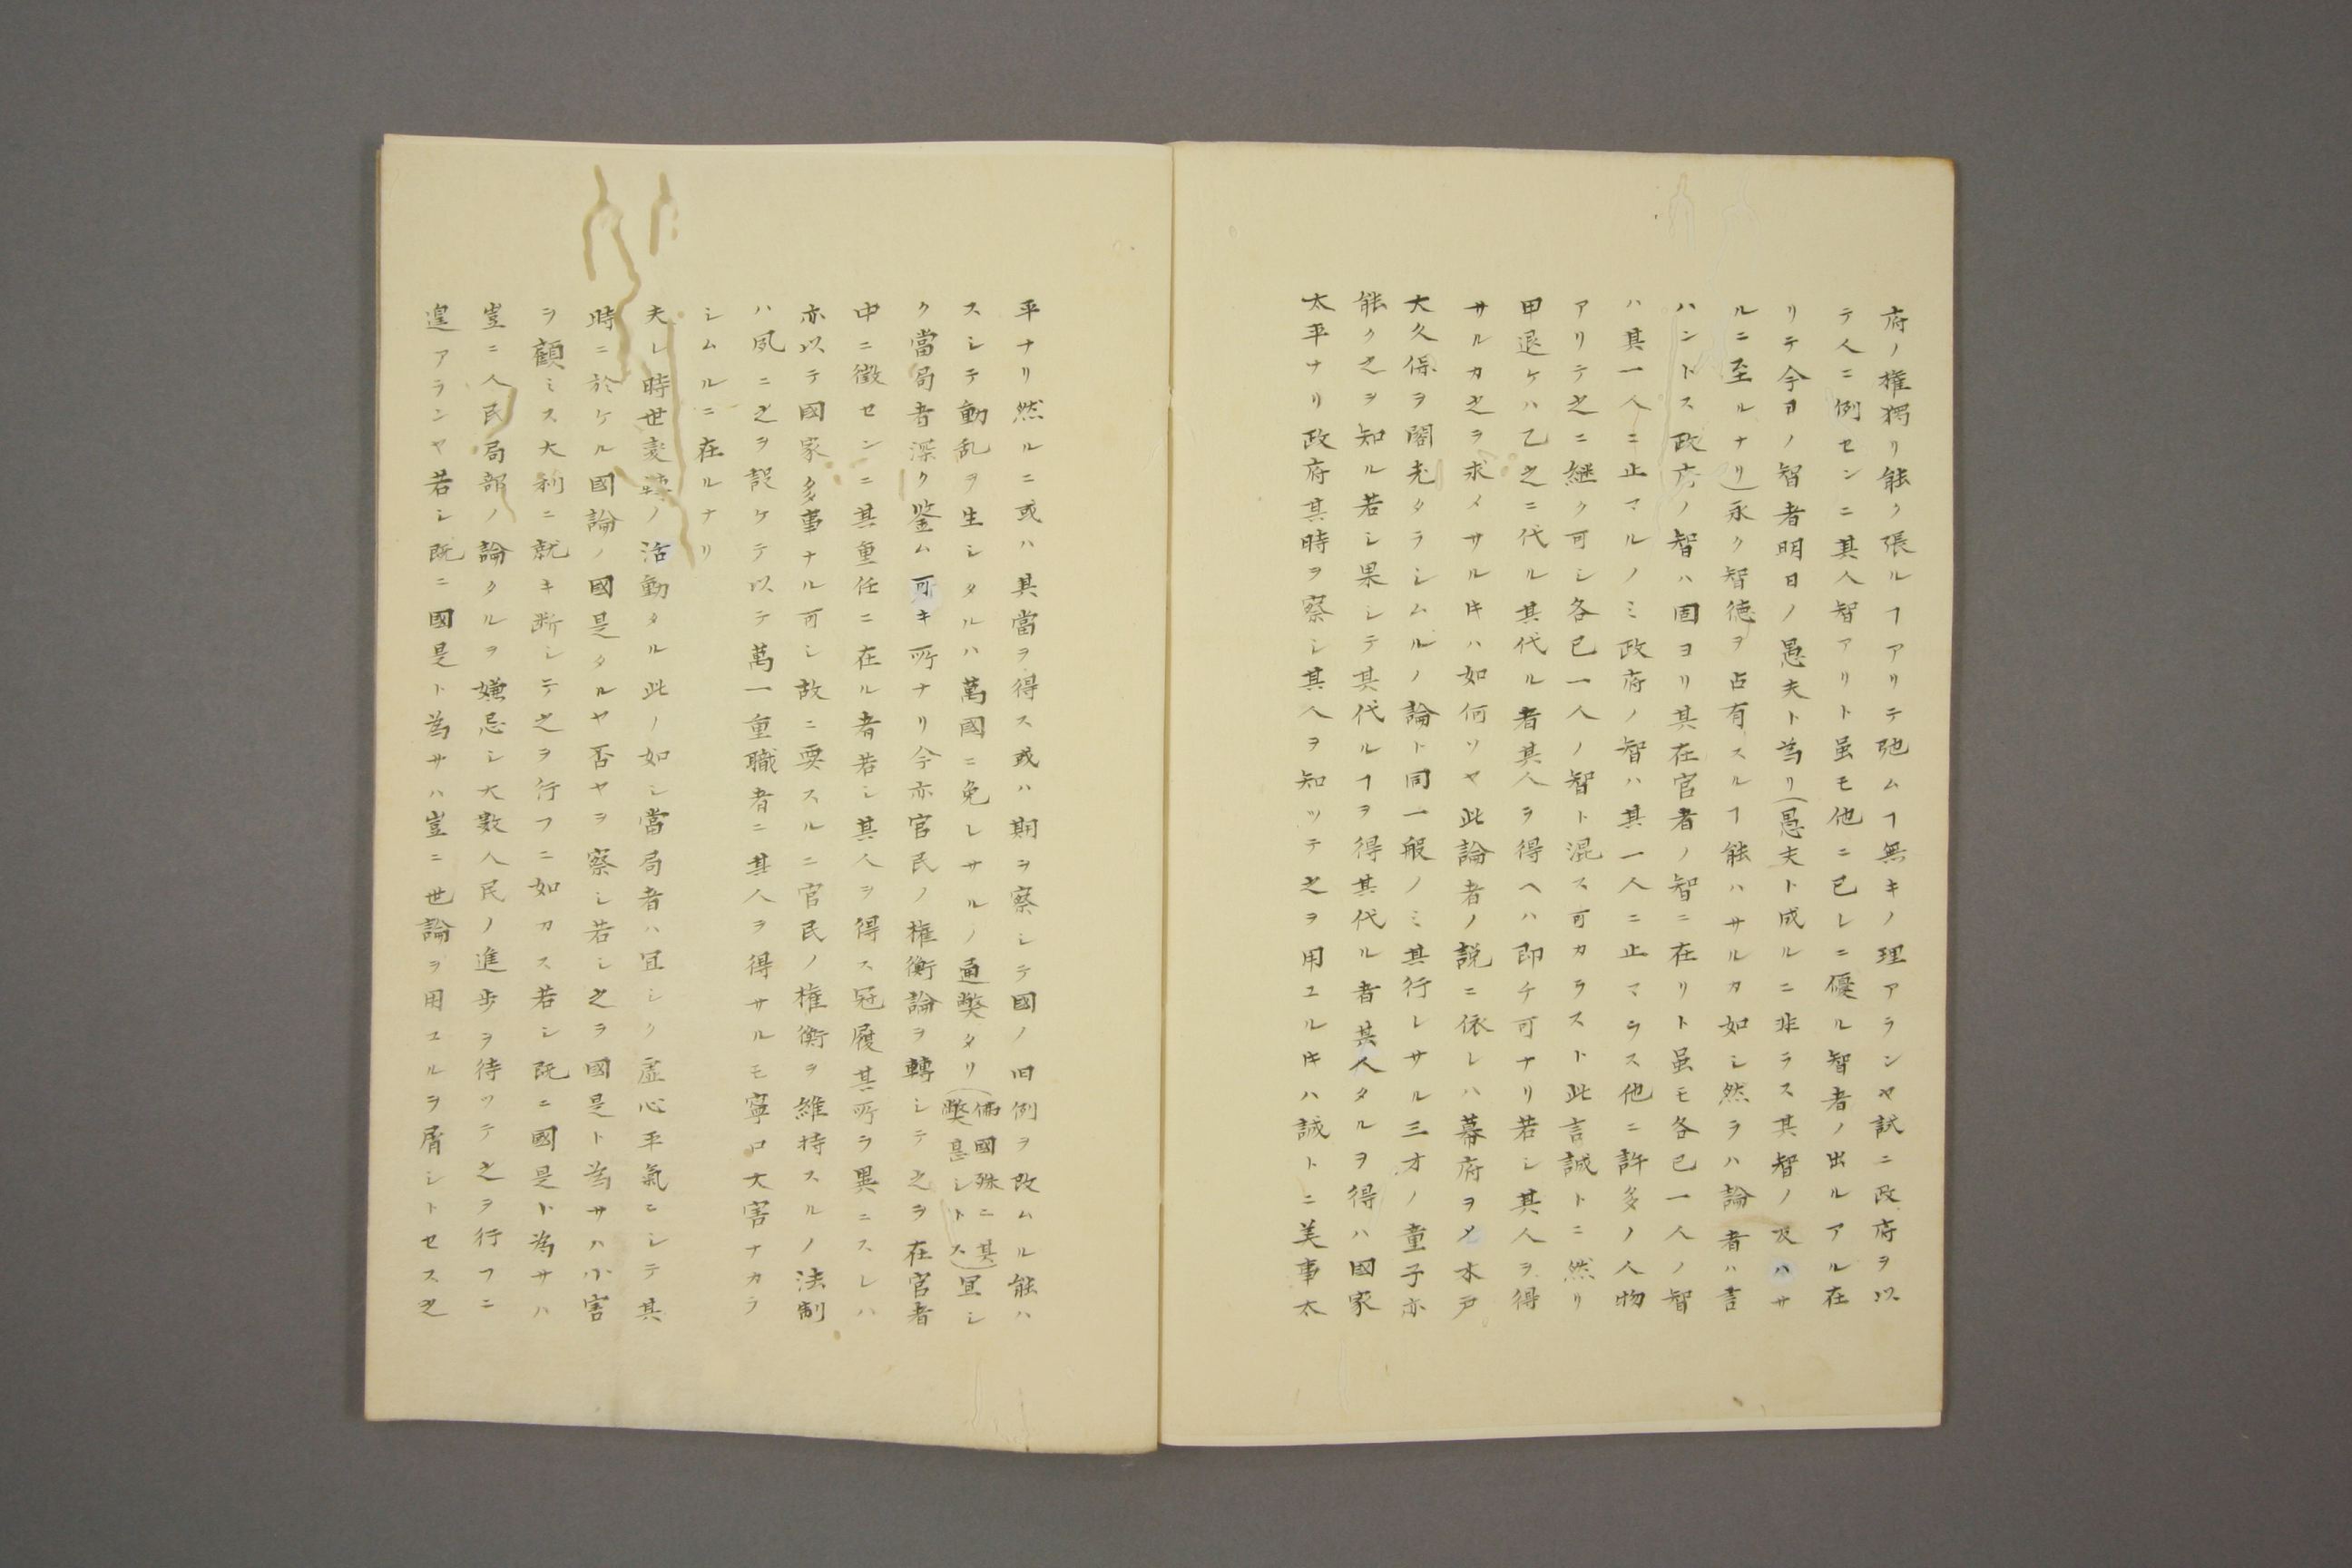 府ノ権獨リ能ク張ルヿアリテ弛ムヿ無キノ理アランヤ試ニ政府ヲ以
テ人ニ例センニ其人智アリト虽モ他ニ己レニ優ル智者ノ出ルアル在
リテ今日ノ智者明日ノ愚夫ト為リ(愚夫ト成ルニ非ラス其智ノ及ハサ
ルニ至ルナリ)永ク智徳ヲ占有スルヿ能ハサルカ如シ然ラハ論者ハ言
ハントス政府ノ智ハ固ヨリ其在官者ノ智ニ在リト虽モ各己一人ノ智
ハ其一人ニ止マルノミ政府ノ智ハ其一人ニ止マラス他ニ許多ノ人物
アリテ之ニ継ク可シ各己一人ノ智ト混ス可カラスト此言誠トニ然リ
甲退ケハ乙之ニ代ル其代ル者其人ヲ得ヘハ即チ可ナリ若シ其人ヲ得
サルカ之ヲ求メサルヰハ如何ソヤ此論者ノ説ニ依レハ幕府ヲメ木戸
大久保ヲ閣老タラシムルノ論ト同一般ノミ其行レサル三才ノ童子亦
能ク之ヲ知ル若シ果シテ其代ルヿヲ得其代ル者其人タルヲ得ハ國家
太平ナリ政府其時ヲ察シ其人ヲ知ツテ之ヲ用ユルヰハ誠トニ美事太
平ナリ然ルニ或ハ其當ヲ得ス或ハ期ヲ察シテ國ノ旧例ヲ改ムル能ハ
スシテ動乱ヲ生シタルハ萬國ニ免レサルノ通弊タリ(儒國殊ニ其弊甚シトス)冝シ
ク當局者深ク鉴ム可キ所ナリ今亦官民ノ権衡論ヲ轉シテ之ヲ在官者
中ニ徴センニ其重任ニ在ル者若シ其人ヲ得ス冠履其所ヲ異ニスレハ
亦以テ國家多事ナル可シ故ニ要スルニ官民ノ権衡ヲ維持スルノ法制
ハ夙ニ之ヲ設ケテ以テ萬一重職者ニ其人ヲ得サルモ寧ロ大害ナカラ
シムルニ在ルナリ
夫レ時世変轉ノ活動タル此ノ如シ當局者ハ冝シク虚心平氣ニシテ其
時ニ於ケル國論ノ國是タルヤ否ヤヲ察シ若シ之ヲ國是ト為サハ小害
ヲ顧ミス大利ニ就キ断シテ之ヲ行フニ如カス若シ既ニ國是ト為サハ
豈ニ人民局部ノ論タルヲ嫌忌シ大数人民ノ進歩ヲ待ツテ之ヲ行フニ
遑アランヤ若シ既ニ國是ト為サハ豈ニ世論ヲ用ユルヲ屑シトセス之